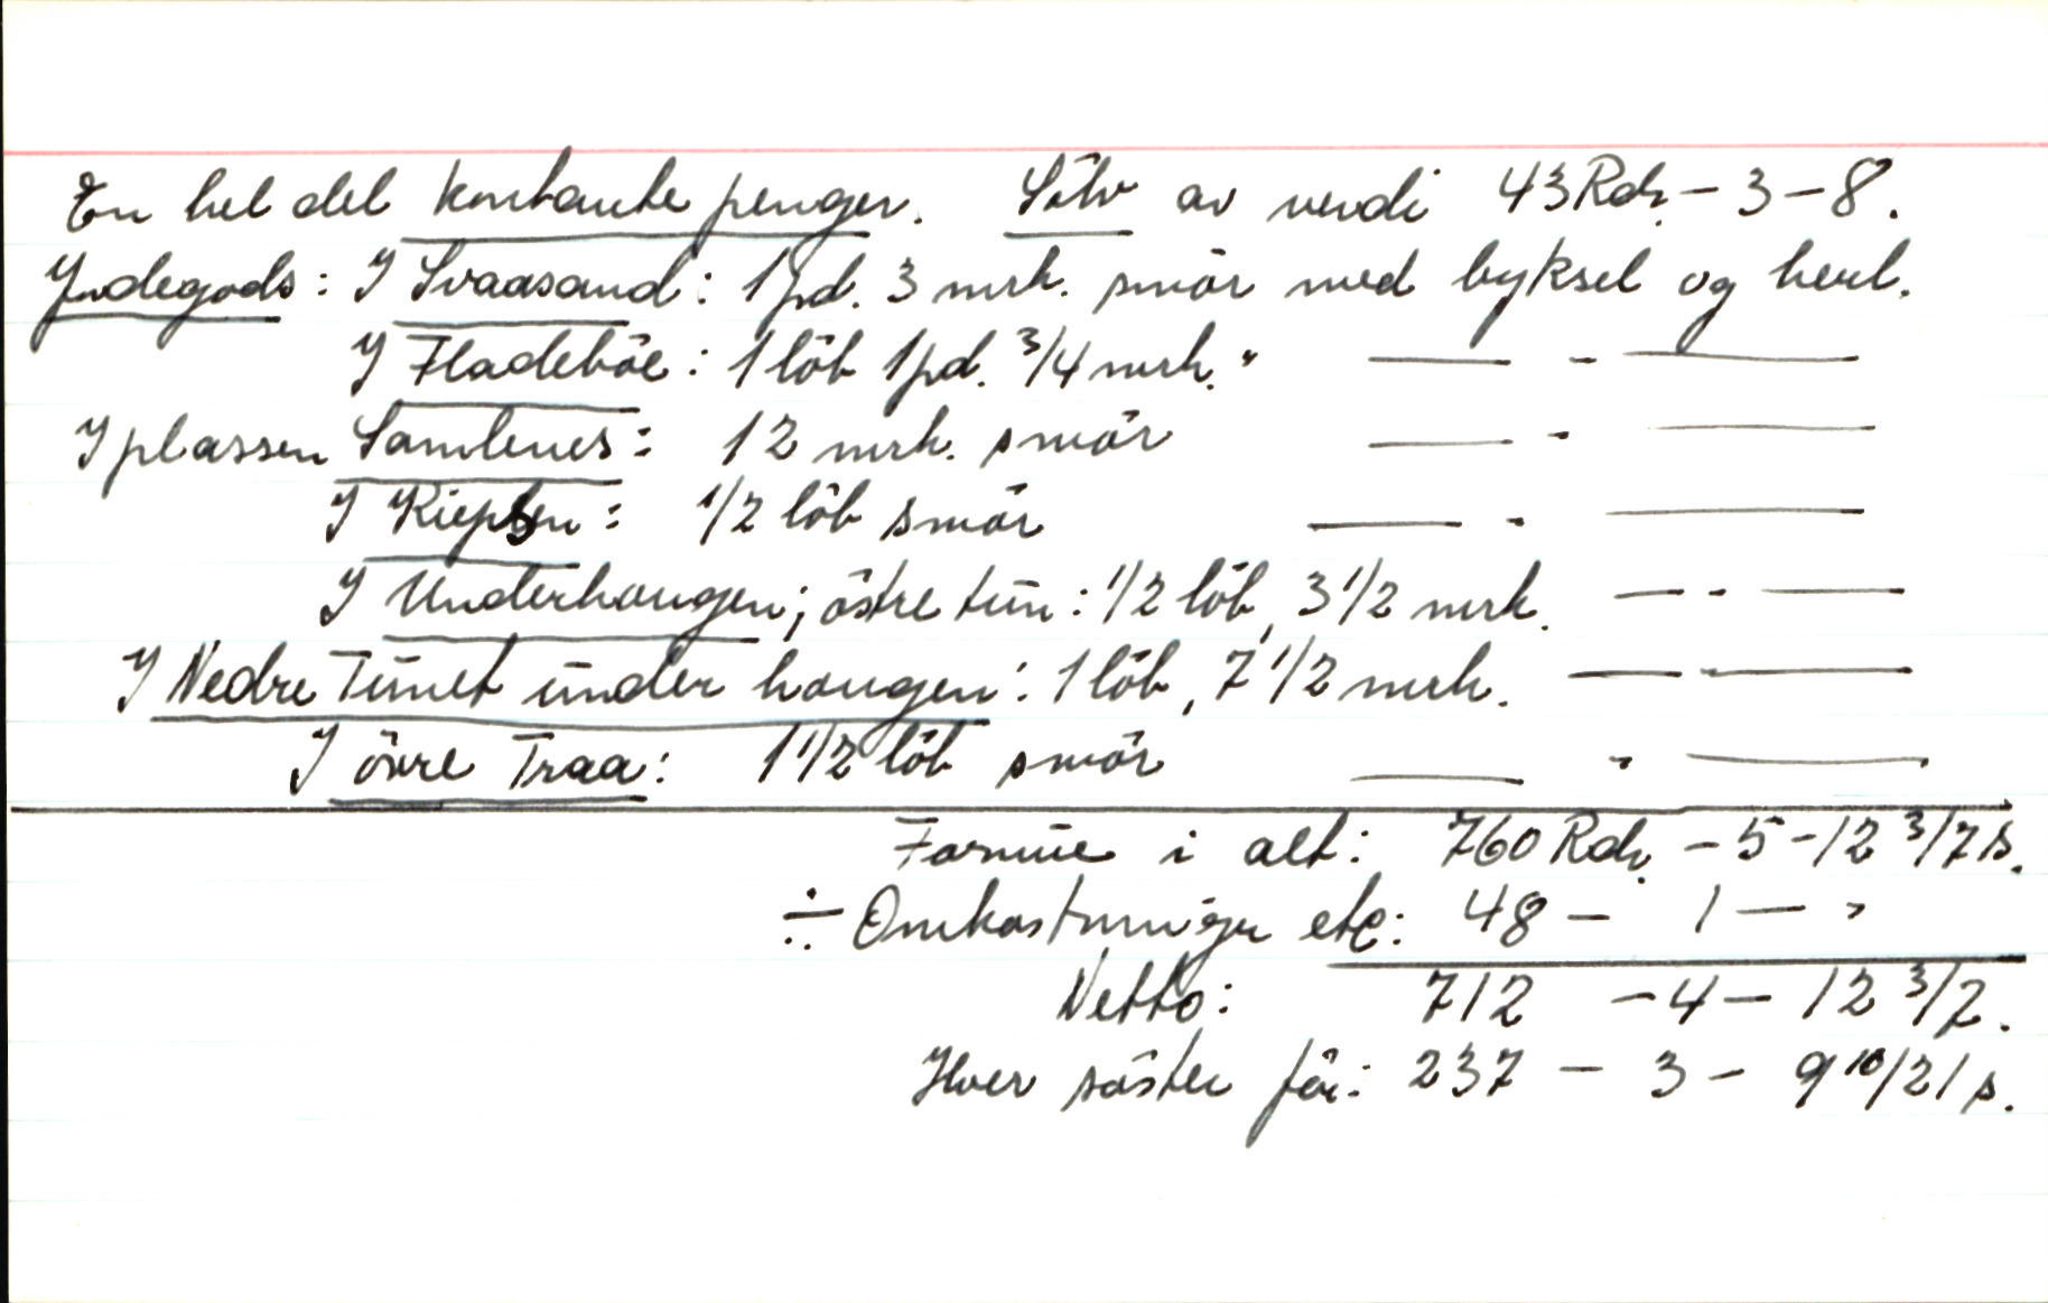 En hel del kontante penger. Sölv av verdi 43 Rdr. - 3 - 8.
Jordegods: I Svaasand: 1 pd. 3 mrk. smör med byksel og herl.
I Fladeböe: 1 löb 1 pd. 3/4 mrk. " —— - ——
I plassen Samlenes: 12 mrk. smör —— - ——
I Kiepsen: 1/2 löb smör —— - ——
I Underhaugen; östre tun: 1/2 löb, 3 1/2 mrk. —— - ——
I Nedre Tunet under haugen: 1 löb, 7 1/2 mrk. —— - ——
I övre Traa: 1 1/2 löb smör —— - ——
Formue i alt: 760 Rdr. - 5 - 12 3/7 s.
÷ Omkostninger etc: 48 - 1 - "
Netto: 712 - 4 - 12 3/7.
Hver söster får: 237 - 3 - 9 10/21 s.